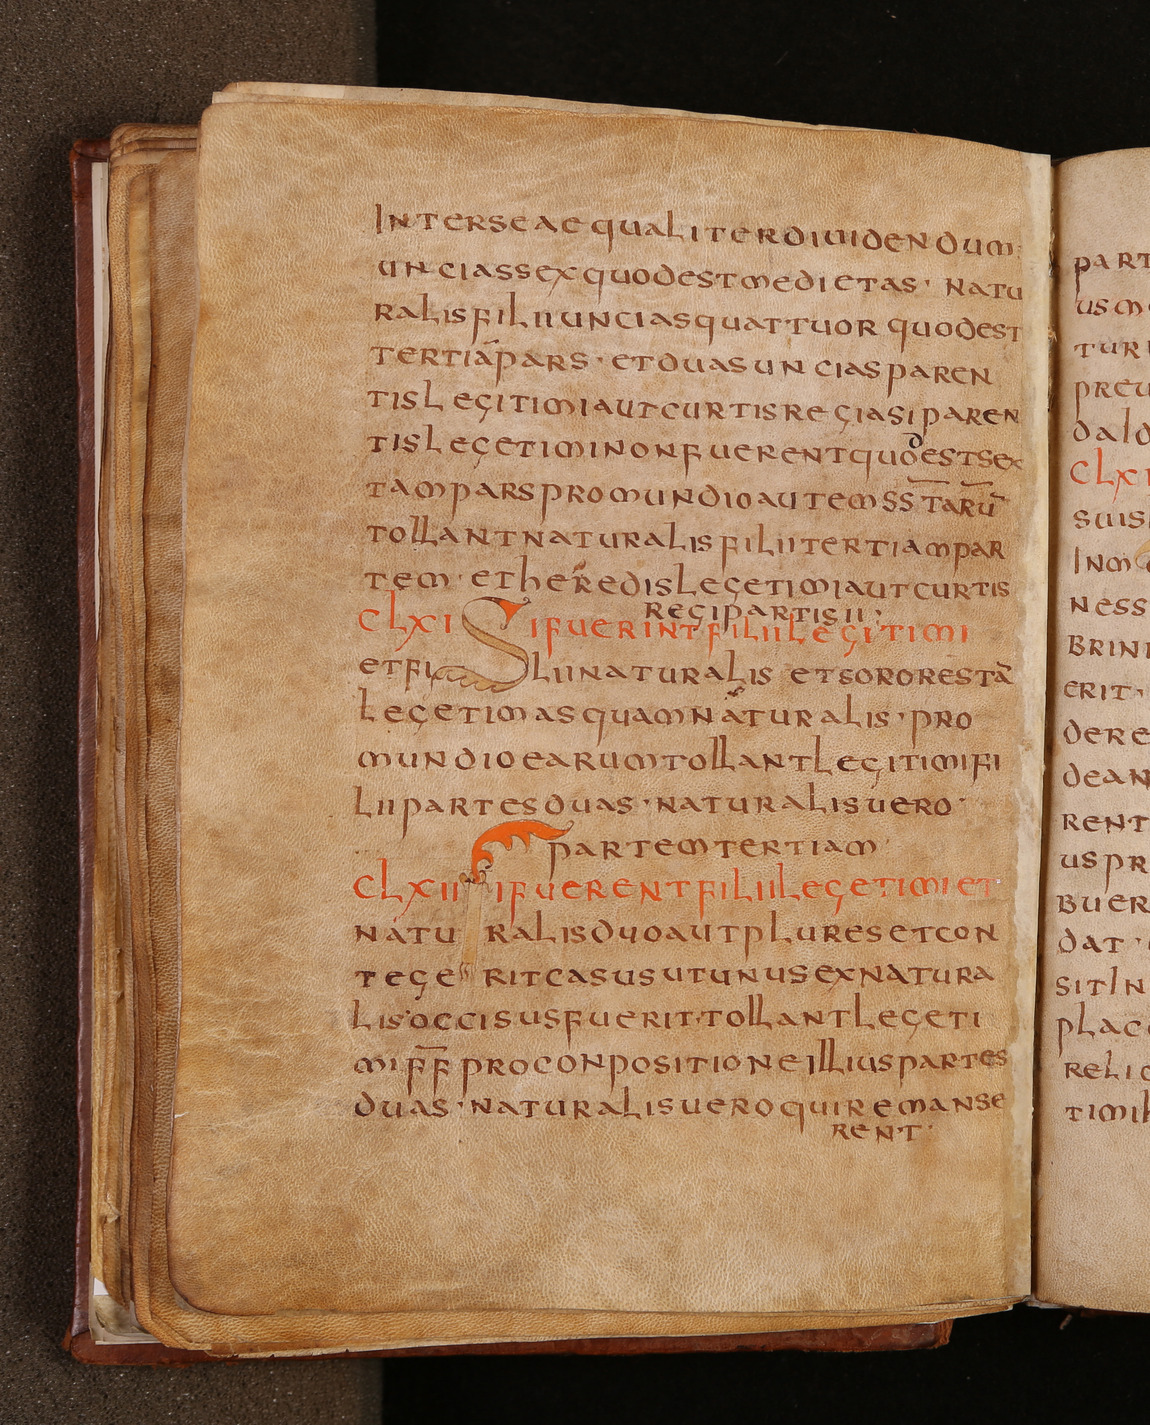 INTERSEAEQUALITERDIUIDENDUM
UNCIASSEXQUODESTMEDIETAS · NATU
RALISFILIIUNCIASQUATTUOR QUODEST
TERTIAPARS · ETDUASUNCIASPAREN
TISLEGITIMIAUTCURTISREGIASIPAREN
TISLEGETIMINONFUERENTQUODESTSEX
TAMPARSPROMUNDIOAUTEMSS̅T̅ARU̅
TOLLANTNATURALISFILIITERTIAMPAR
TEM · ETHEREDISLEGETIMIAUTCURTIS
REGIPARTISII ;
CLXI SIFUERINTFILIILEGITIMI
ETFILIINATURALIS ETSORORESTA̅
LEGETIMASQUAMNATURALIS · PRO
MUNDIOEARUMTOLLANTLEGITIMIFI
LIIPARTESDUAS · NATURALISUERO ·
PARTEMTERTIAM
CLXII SIFUERENTFILIILEGETIMIET
NATURALISDUOAUTPLURESETCON
TEGERITCASUSUTUNUSEXNATURA
LISOCCISUSFUERIT · TOLLANTLEGETI
MIF̅F̅ PROCONPOSITIONEILLIUSPARTES
DUAS · NATURALISUEROQUIREMANSE
RENT ·
PART
USM
TURI
PREU
DALD
CLXI
SUIS
INM
NESS
BRIN
ERIT ·
DERE
DEAN
RENT
USPR
BUER
DAT ·
SITIN
PLAC
RELI
TIMI